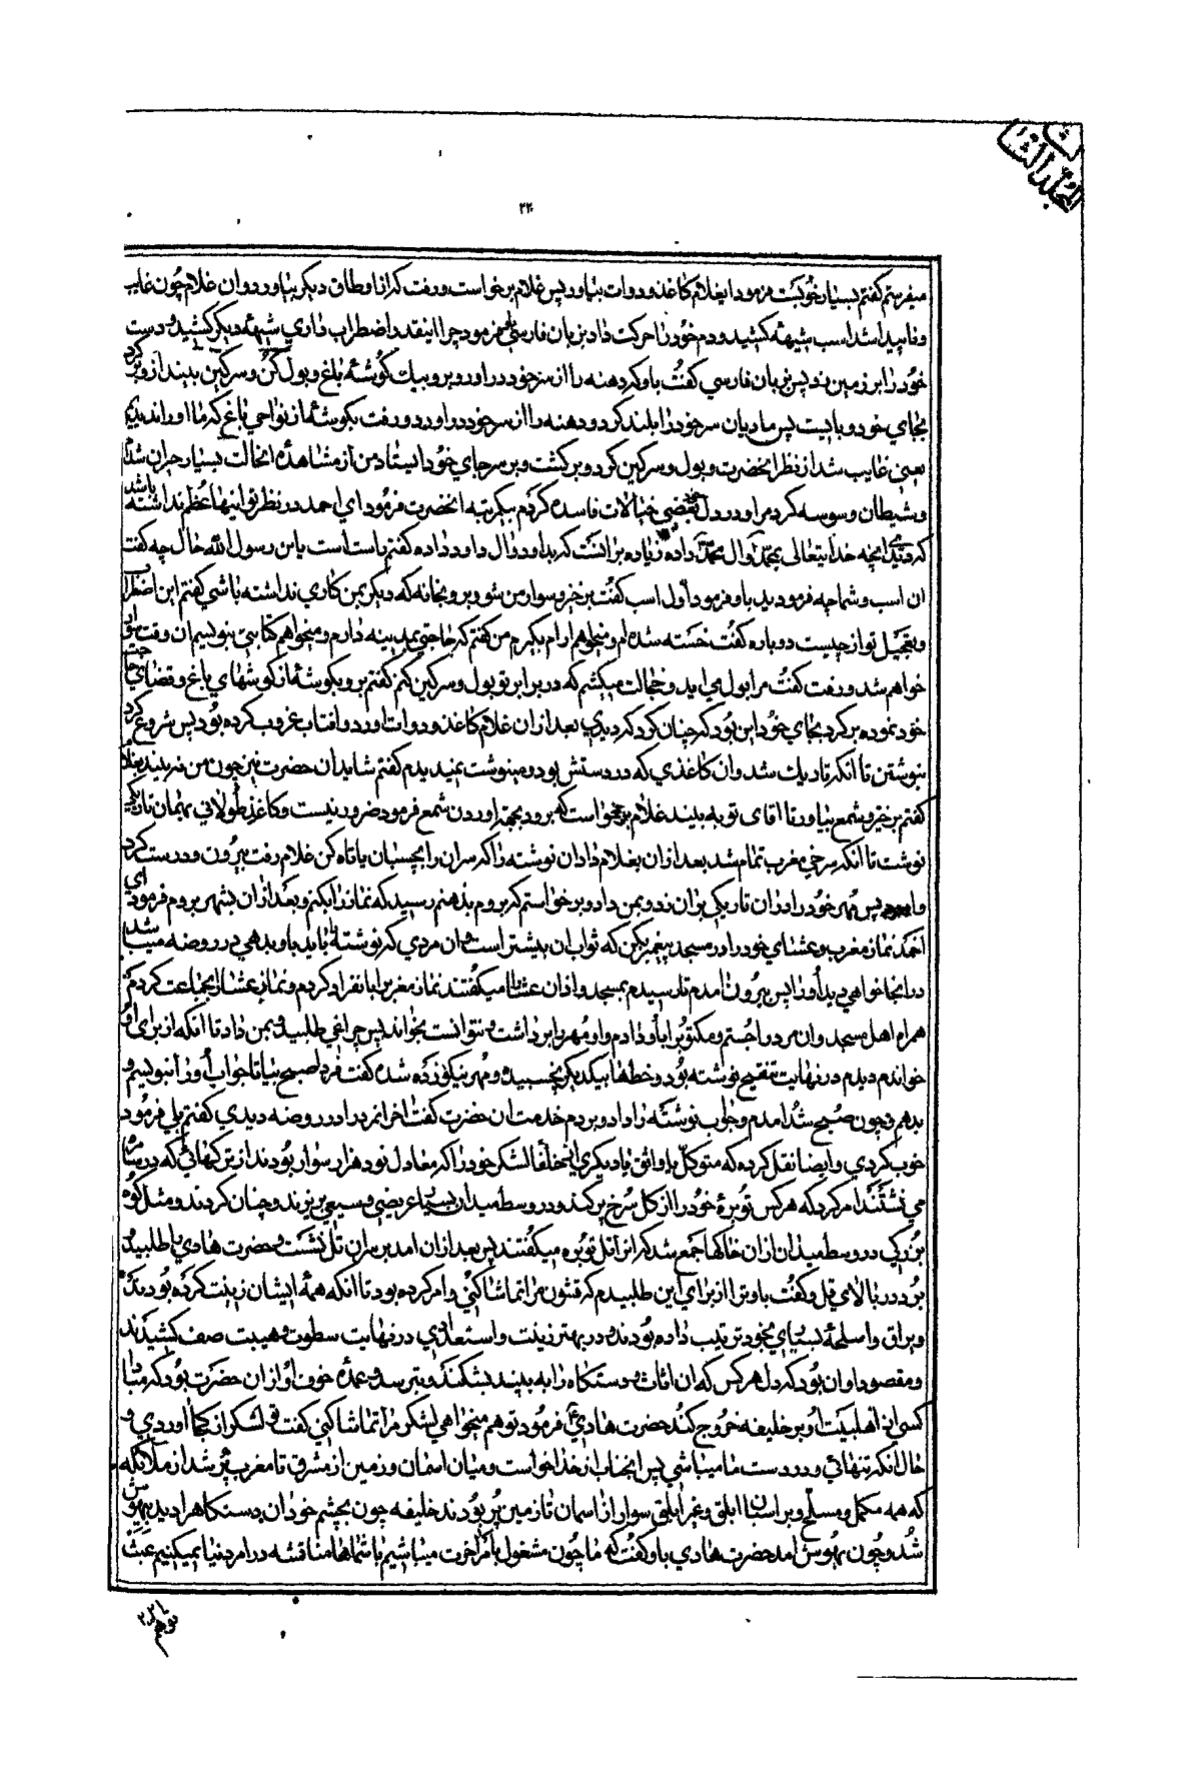 المجلد الثالث
۲۲۰
میفرستم گفتم بسیار خوبست فرمود ایغلام کاغذ و دوات بیاور پس غلام برخواست و رفت که از اوطاق دیگر بیاورد و ان غلام چون غایب
و ناپیدا شد اسب شیههٔ کشید و دم خود را حرکت داد بزبان فارسی فرمود چرا اینقدر اضطراب داری شیههٔ دیگر کشید و دست
خود را بر زمین زد پس بزبان فارسی گفت باو که دهنه را از سر خود در اور و برو بیک گوشهٔ باغ و بول کن و سرکین بیند از و برگرد
بجای خود و بایست پس مادیان سر خود را بلند کرد و دهنه را از سر خود در اورد و رفت بگوشهٔ از نواحی باغ که ما او را ندیدیم
یعنی غایب شد از نظر انحضرت و بول و سرکین کرد و برگشت و بر سر جای خود ایستاد من از مشاهدهٔ انحالت بسیار حیران شدم
و شیطان وسوسه کرد مرا و در دل خود بعضی خیالات فاسده کردم بیکمرتبه انحضرت فرمود ای احمد در نظر تو اینها عظم نداشته باشد
که دیدی انچه خدایتعالی بمحمد و ال محمد داده زیاده بر انست که بداود و ال داود داده گفتم راست است یابن رسول الله حال چه گفت
ان اسب و شما چه فرمودید باو فرمود اول اسب گفت برخیز و سوار من شو و برو بخانه که دیگر بمن کاری نداشته باشی گفتم این اضطراب
و تعجیل تو از چیست دوباره گفت خسته شده ام و میخواهم ارام بگیرم من گفتم که حاجتی بمدینه دارم و میخواهم کتابتی بنویسم ان وقت سوار
خواهم شد و رفت گفت مرا بول می اید و خجالت میکشم که در برابر تو بول و سرکین کنم گفتم برو بگوشهٔ از گوشهای باغ و قضای حاجت
خود نموده برگرد بجای خود این بود که چنان کرد که دیدی بعد از ان غلام کاغذ و دوات اورد و افتاب غروب کرده بود پس شروع کرد
بنوشتن تا انکه تاریك شد و ان کاغذی که در دستش بود و مینوشت نمیدیدم گفتم شاید ان حضرت نیز چون من نمیبیند بغلام
گفتم برخیز و شمع بیاور تا اقای تو به بیند غلام برخواست که برود بجهة اوردن شمع فرمود ضرور نیست و کاغذ طولانی بهمان تاریکی
نوشت تا انکه سرخی مغرب تمام شد بعد از ان بغلام داد ان نوشته را که سر ان را بچسبان یا تاه کن غلام رفت بیرون و درست کرد
پس مهر خود را در ان تاریکی بر ان زد و بمن داد و برخواستم که بروم بذهنم رسید که نماز را بکنم و بعد از ان بشهر بروم فرمود ای
احمد نماز مغرب و عشای خود را در مسجد پیغمبر بکن که ثواب ان بیشتر است و ان مردی که نوشته را باید باو بدهی در روضه میباشد
در انجا خواهی دید او را پس بیرون امدم تا رسیدم بمسجد و اذان عشا را میگفتند نماز مغرب را بانفراد کردم و نماز عشا را بجماعت کردم
همراه اهل مسجد و ان مرد را جستم و مکتوب را باو دادم و او مهر را برداشت و نتوانست بخواند پس چراغی طلبید و بمن داد تا انکه از برای او
خواندم دیدم در نهایت تنقیح نوشته بود و خطها بیکدیگر نچسبیده و مهر نیکو زده شده گفت فردا صبح بیا تا جواب او را بنویسم و
بدهم و چون صبح شد امدم و جواب نوشته را داد و بردم خدمت ان حضرت گفت اخر انمرد را در روضه دیدی گفتم بلی فرمود
خوب کردی و ایضا نقل کرده که متوکل یا واثق یا دیگری از خلفا لشکر خود را که معادل نود هزار سوار بودند از ترکهائی که در سامره
می نشستند امر کرد که هر کس توبرهٔ خود را از کل سرخ پر کند و در وسط میدان بسیار عریضی و وسیعی بریزند و چنان کردند و مثل کوه
بزرکی در وسط میدان از ان خاکها جمع شد که انرا تل توبره میگفتند پس بعد از ان امد بر سر ان تل نشست و حضرت هادی را طلبید و
برد در بالای تل و گفت باو ترا از برای این طلبیدم که قشون مرا تماشا کنی و امر کرده بود تا انکه همهٔ ایشان زینت کرده بودند
و یراق و اسلحهٔ بسیاری بخود ترتیب داده بودند و در بهتر زینت و استعدادی در نهایت سطوت و هیبت صف کشیدند
و مقصود او ان بود که دل هر کس که ان اثاث و دستگاه را به بیند بشکند و بترسد و عمده خوف او از ان حضرت بود که مبادا
کسی از اهلبیت او بر خلیفه خروج کند حضرت هادی فرمود تو هم میخواهی لشکر مرا تماشا کنی گفت تو لشکر از کجا اوردی و
حال انکه تنهائی و در دست ما میباشی پس انجناب از خدا خواست و میان اسمان و زمین از مشرق تا مغرب پر شد از ملائکه
که همه مکمل و مسلح و بر اسبان ابلق و غیر ابلق سوار از اسمان تا زمین پر بودند خلیفه چون بچشم خود ان دستگاه را دید بیهوش
شد و چون بهوش امد حضرت هادی باو گفت که ما چون مشغول بامر اخرت میباشیم با شماها مناقشه در امر دنیا نمیکنیم عبث
توهم